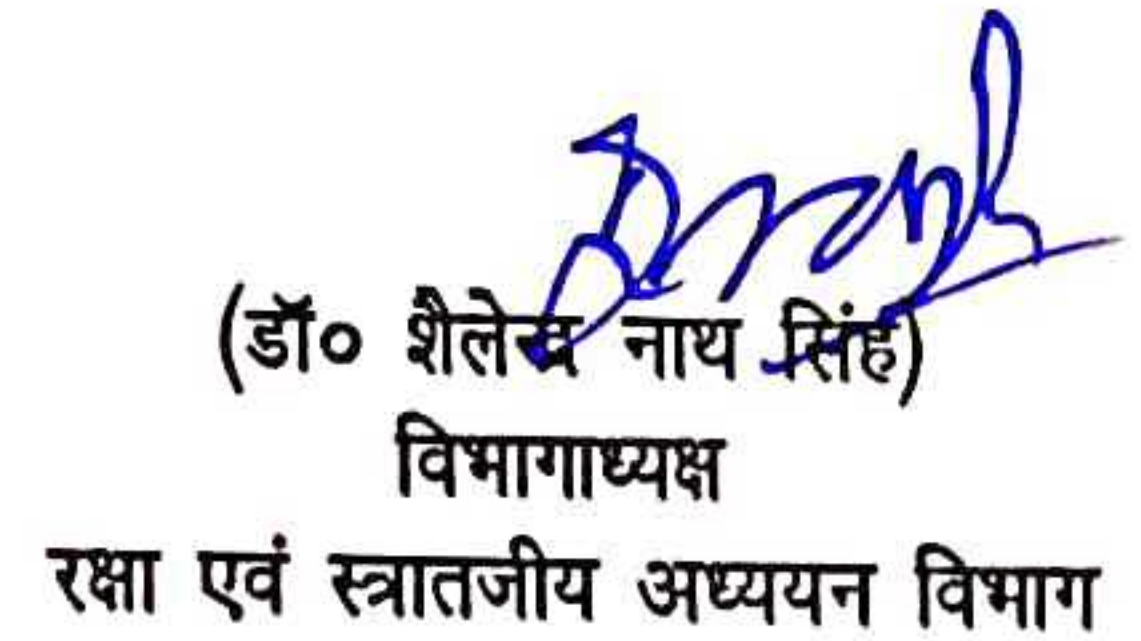 (डॉ० शैलेन्द्र नाथ सिंह)
विभागाध्यक्ष
रक्षा एवं स्त्रातजीय अध्ययन विभाग